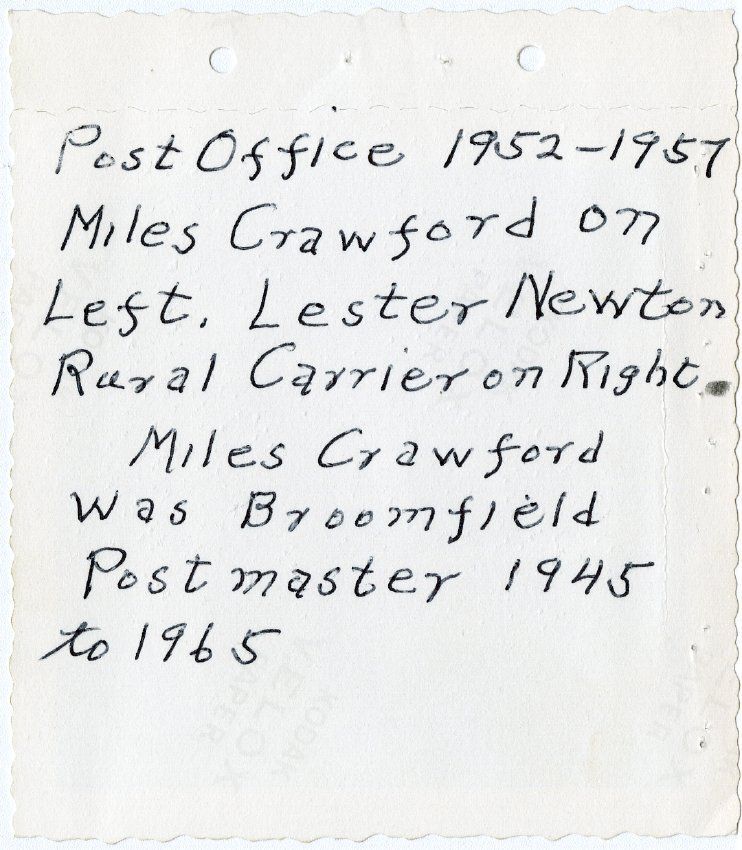 Post Office 1952-1957
Miles Crawford on
Left. Lester Newton
Rural Carrier on Right.
Miles Crawford
was Broomfield
Postmaster 1945
to 1965
KODAK
VELOX
PAPER